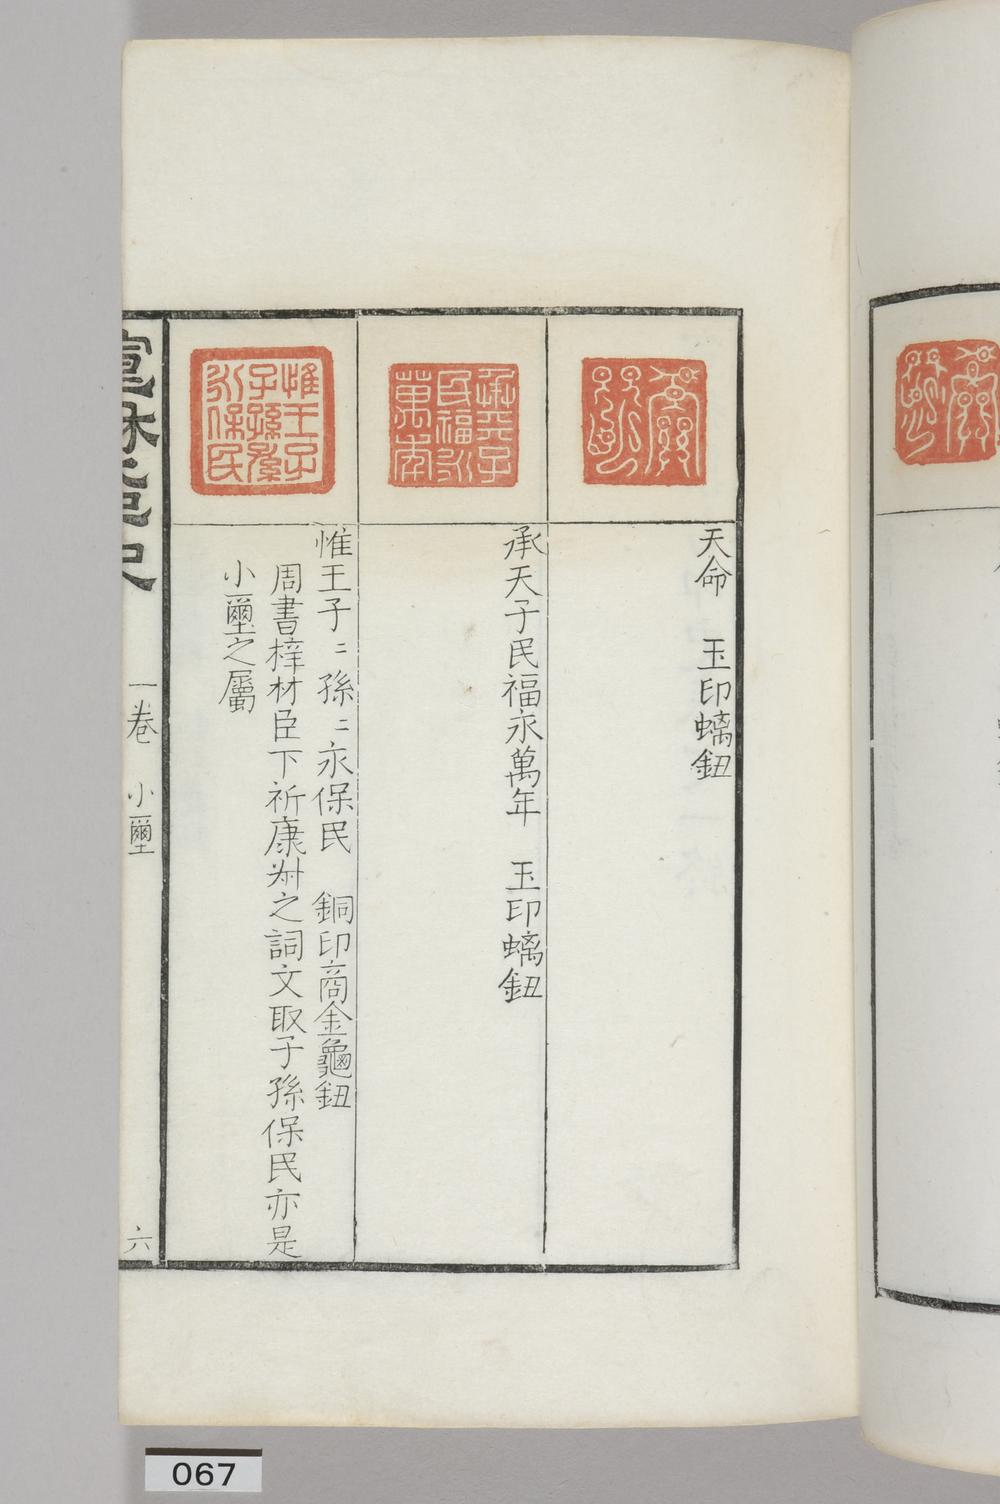 天命　玉印螭鈕
承天子民福永萬年　玉印螭鈕
惟王子〻孫〻永保民　銅印商金龜鈕
周書梓材臣下祈康叔之詞文取子孫保民亦是
小璽之屬
一卷　小璽
六
067